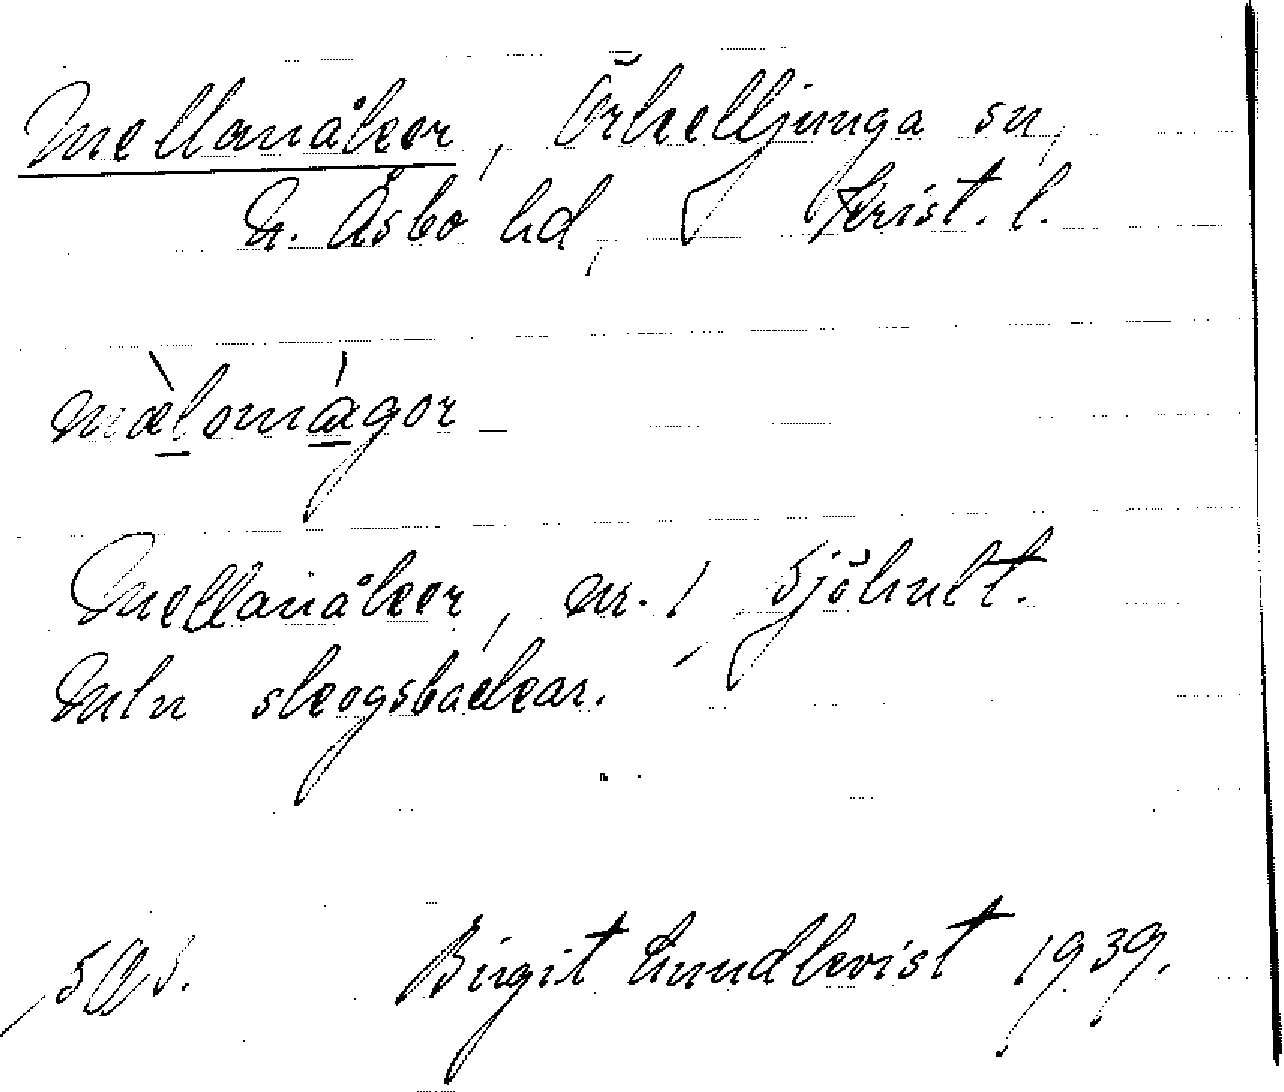 Mellanåker, Örkelljunga sn,
N. Åsbo hd, Krist. l.
mælomágor
Mellanåker, nr. 1 Sjöhult.
Mln skogsbackar.
Birgit Lundkvist 1939.